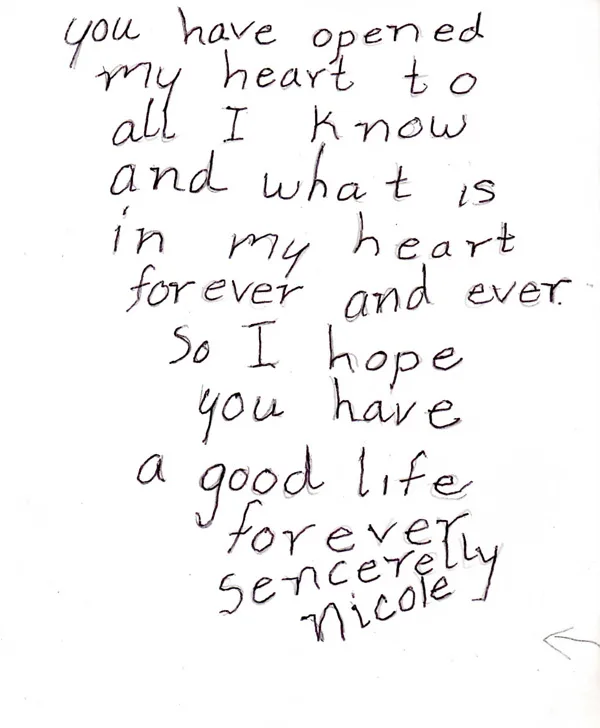 you have opened
my heart to
all I know
and what is
in my heart
forever and ever.
So I hope
you have
a good life
forever
sencerelly
nicole